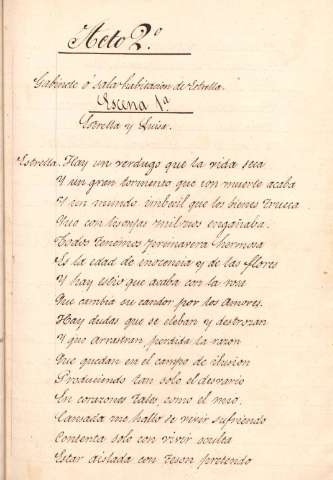 Acto 2.º
Gabinete ó sala habitacion de Estrella.
Escena 1ª
Estrella y Luisa.
Estrella. Hay un verdugo que la vida seca
Y un gran tormento que con muerte acaba
Y un mundo imbecil que los bienes trueca
Que con lisonjas mil nos engañaba.
Todos tenemos primavera hermosa
Es la edad de inocencia y de las flores
Y hay estio que acaba con la rosa
Que cambia su candor por los Amores.
Hay dudas que se eleban y destrozan
Y que arrastran perdida la razon
Que quedan en el campo de ilusion
Produciendo tan solo el desvario
En corazones tales como el mio.
Cansada me hallo de vivir sufriendo
Contenta solo con vivir oculta
Estar aislada con teson pretendo